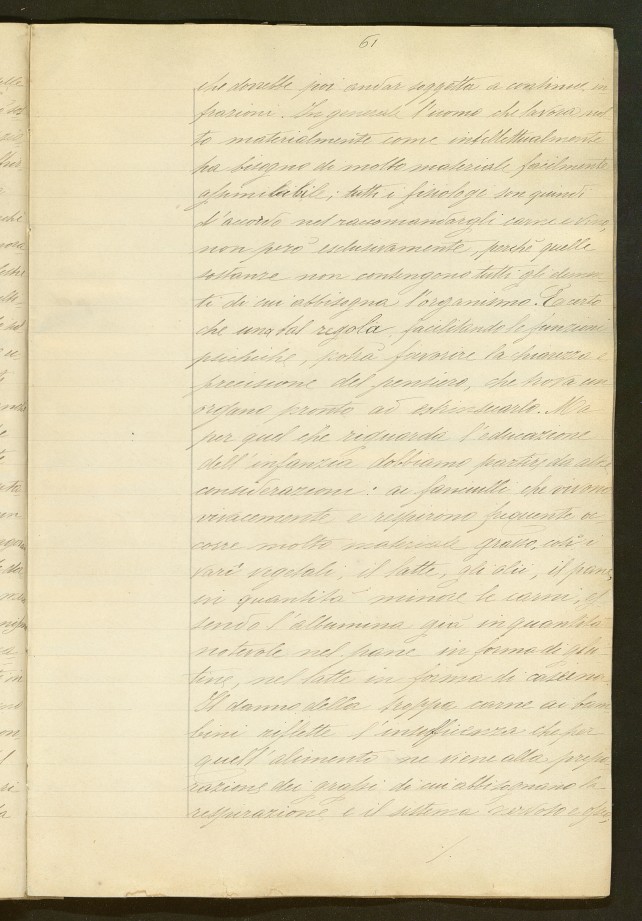 61
che dovesse poi andar soggetta a continue in
frazioni. In generale l'uomo che lavora, tan
to materialmente come intellettualmente
ha bisogno di molto materiale facilmente
assimilabile; tutti i fisiologi son quindi
d'accordo nel raccomandargli carne e vino,
non però esclusivamente, perchè quelle
sostanze non contengono tutti gli elemen
ti di cui abbisogna l'organismo. È certo
che una tal regola, facilitando le funzioni
psichiche, potrà favorire la chiarezza e
precisione del pensiero, che trova un
organo pronto ad estrinsecarlo. Ma
per quel che riguarda l'educazione
dell'infanzia dobbiamo partire da altre
considerazioni: ai fanciulli che vivono
vivacemente e respirono frequente oc
corre molto materiale grasso, cosi i
varî vegetali, il latte, gli olii, il pane,
in quantità minore le carni, es
sendo l'albumina già in quantità
notevole nel pane in forma di glu
tine, nel latte in forma di caseina.
Il danno della troppa carne ai bam
bini riflette l'insufficienza che per
quell'alimento ne viene alla prepa
razione dei grassi di cui abbisognano la
respirazione e il sistema nervoso e